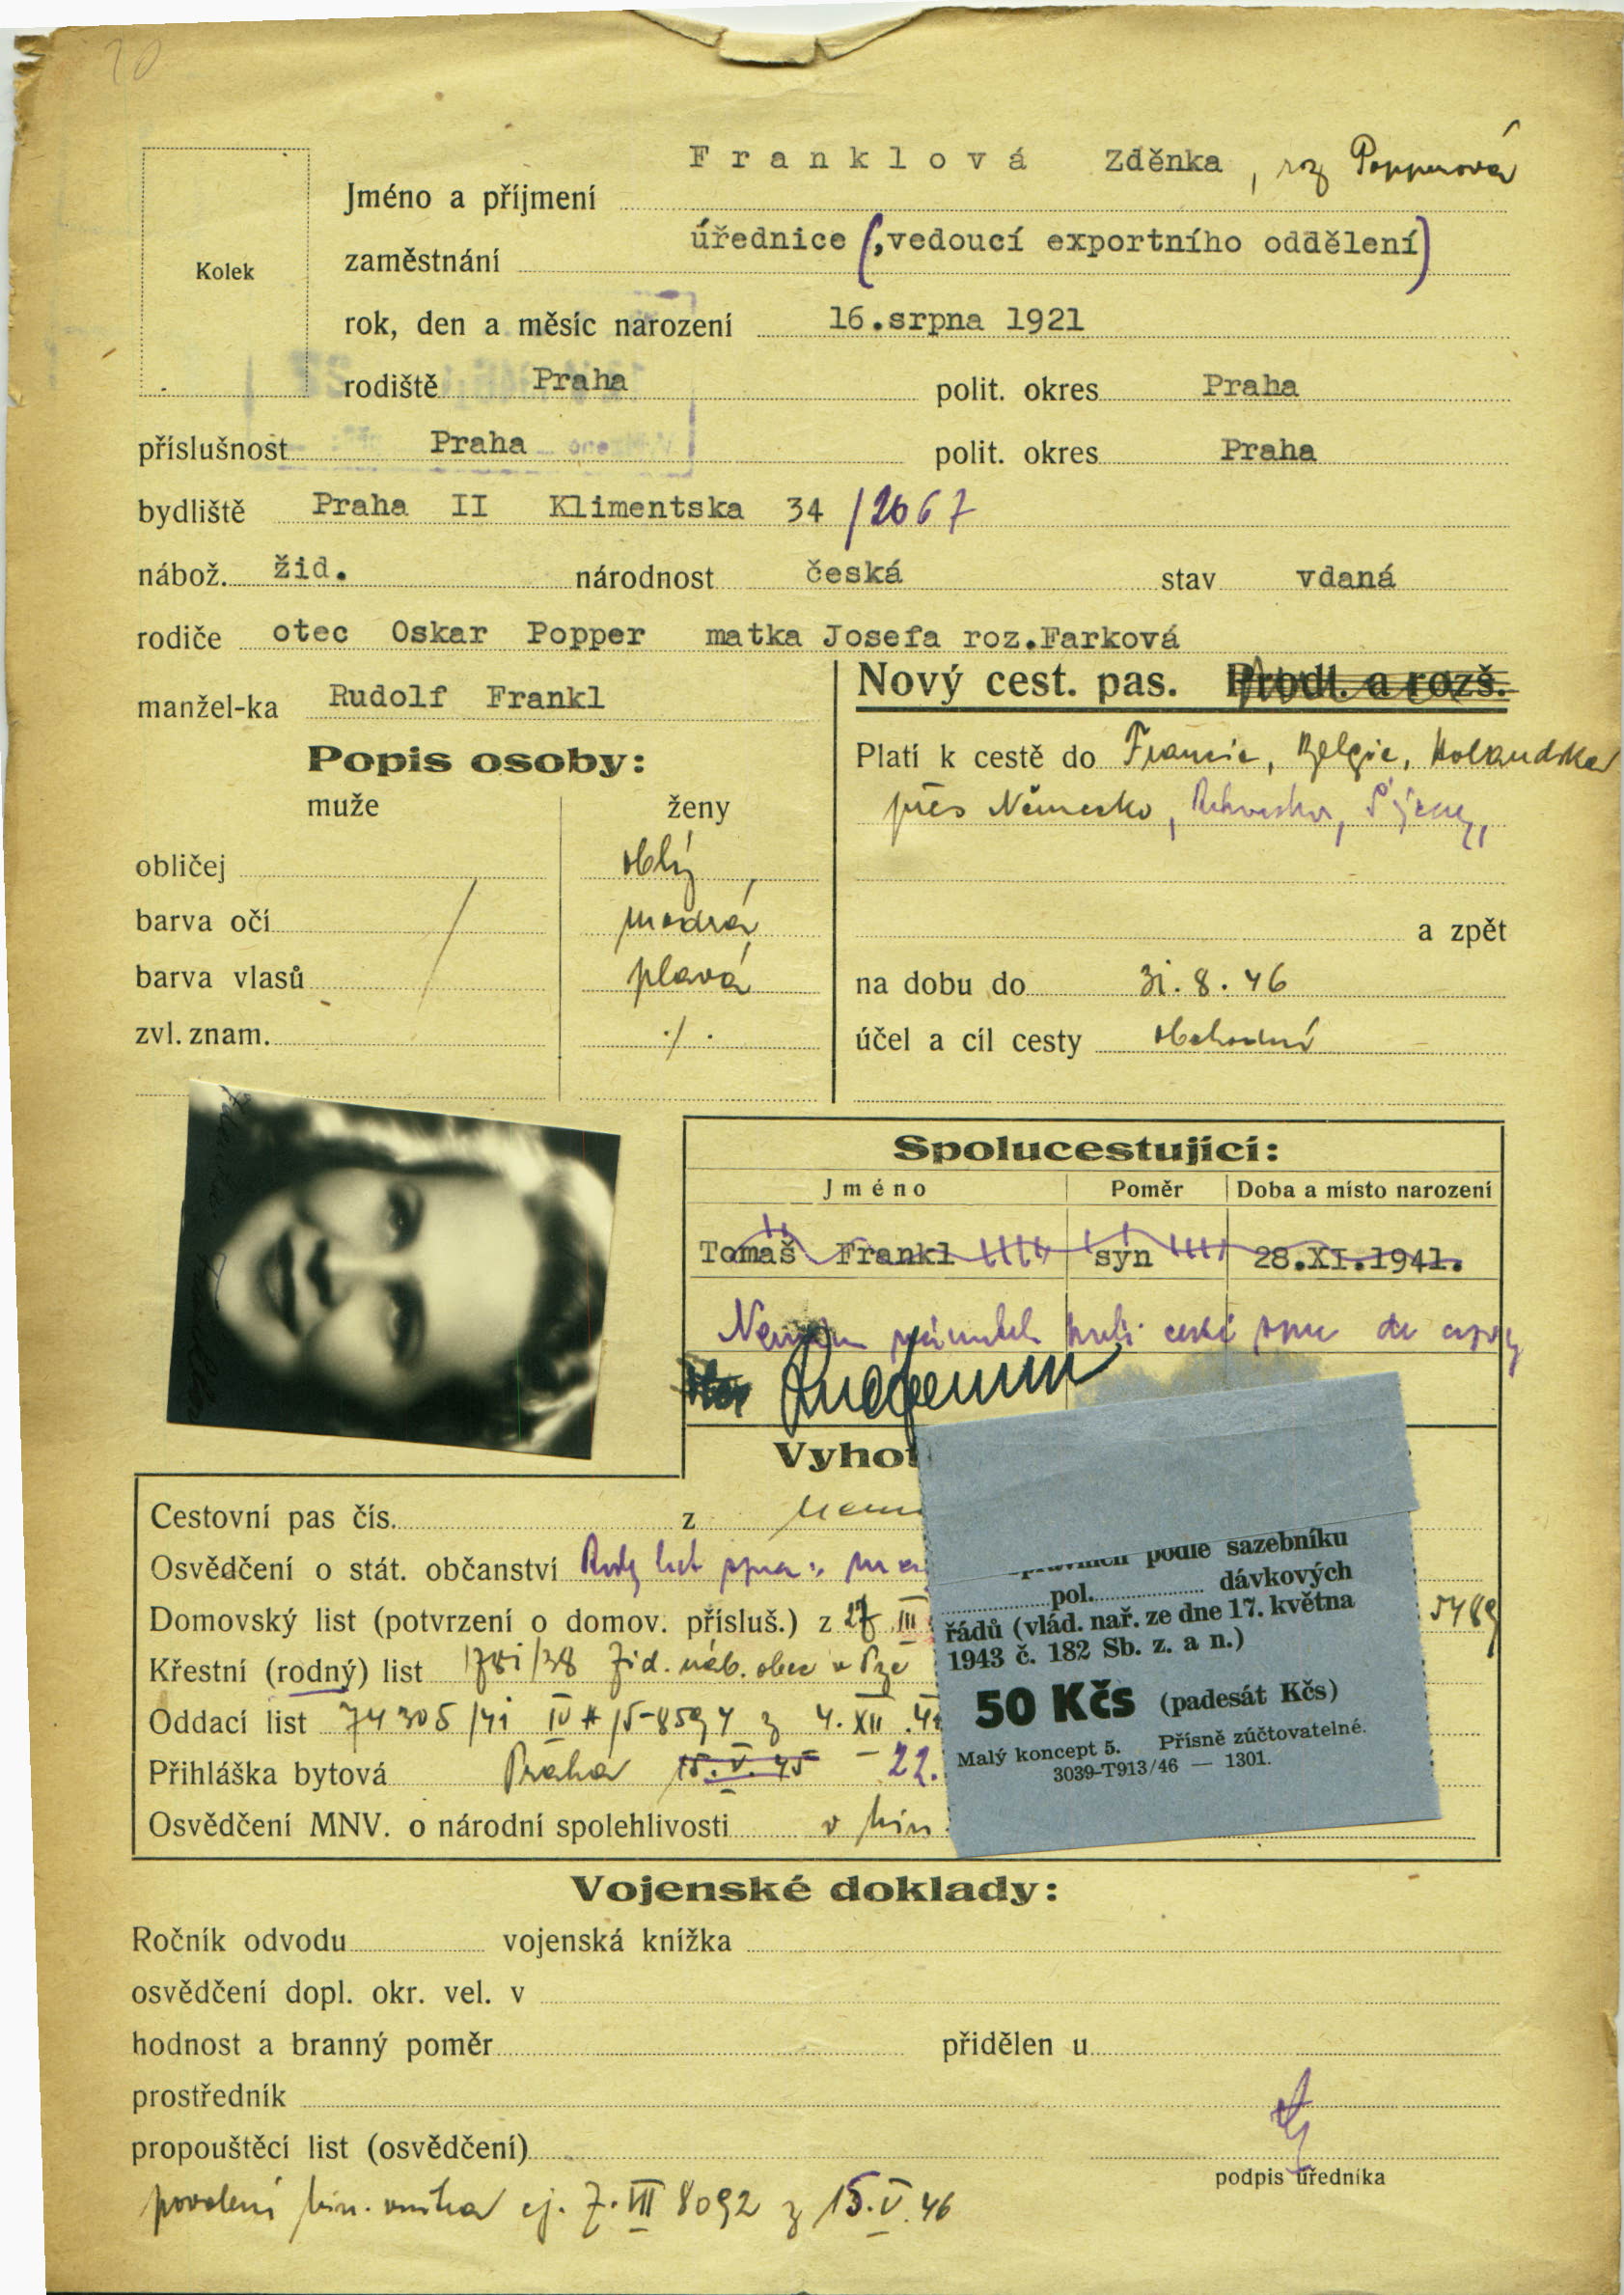 20
Franklová Zděnka, roz Popperová
Jméno a příjmení
úřednice (,vedoucí exportního oddělení)
zaměstnání
Kolek
rok, den a měsíc narození 16.srpna 1921
rodiště Praha polit. okres Praha
příslušnost Praha polit. okres Praha
bydliště Praha II Klimentska 34 /2067
nábož. žid. národnost česká stav vdaná
rodiče otec Oskar Popper matka Josefa roz.Farková
manžel-ka Rudolf Frankl
Nový cest. pas. Prodl. a rozš.
Popis osoby:
muže ženy
obličej oblý
barva očí modrá
barva vlasů plavá
zvl. znam. ./.
Platí k cestě do Francie, Belgie, Holandska
přes Německo,
a zpět
na dobu do 31.8.46
účel a cíl cesty obchodní
Spolucestující:
Jméno Poměr Doba a místo narození
Tomaš Frankl syn 28.XI.1941.
Vyho
Cestovní pas čís. z
Osvědčení o stát. občanství
Domovský list (potvrzení o domov. přísluš.) z 27 III 5489
Křestní (rodný) list 1781/38 žid. náb. obec v Pze
Oddací list 74305/41 z 4. XII .41
Přihláška bytová Praha 15.V.45 - 22.
Osvědčení MNV. o národní spolehlivosti
podle sazebníku
pol. dávkových
řádů (vlád. nař. ze dne 17. května
1943 č. 182 Sb. z. a n.)
50 Kčs (padesát Kčs)
Malý koncept 5. Přísně zúčtovatelné.
3039-T913/46 — 1301.
Vojenské doklady:
Ročník odvodu vojenská knížka
osvědčení dopl. okr. vel. v
hodnost a branný poměr přidělen u
prostředník
propouštěcí list (osvědčení)
podpis úředníka
povolení min. vnitra čj. Z.VII 8092 z 15.V.46